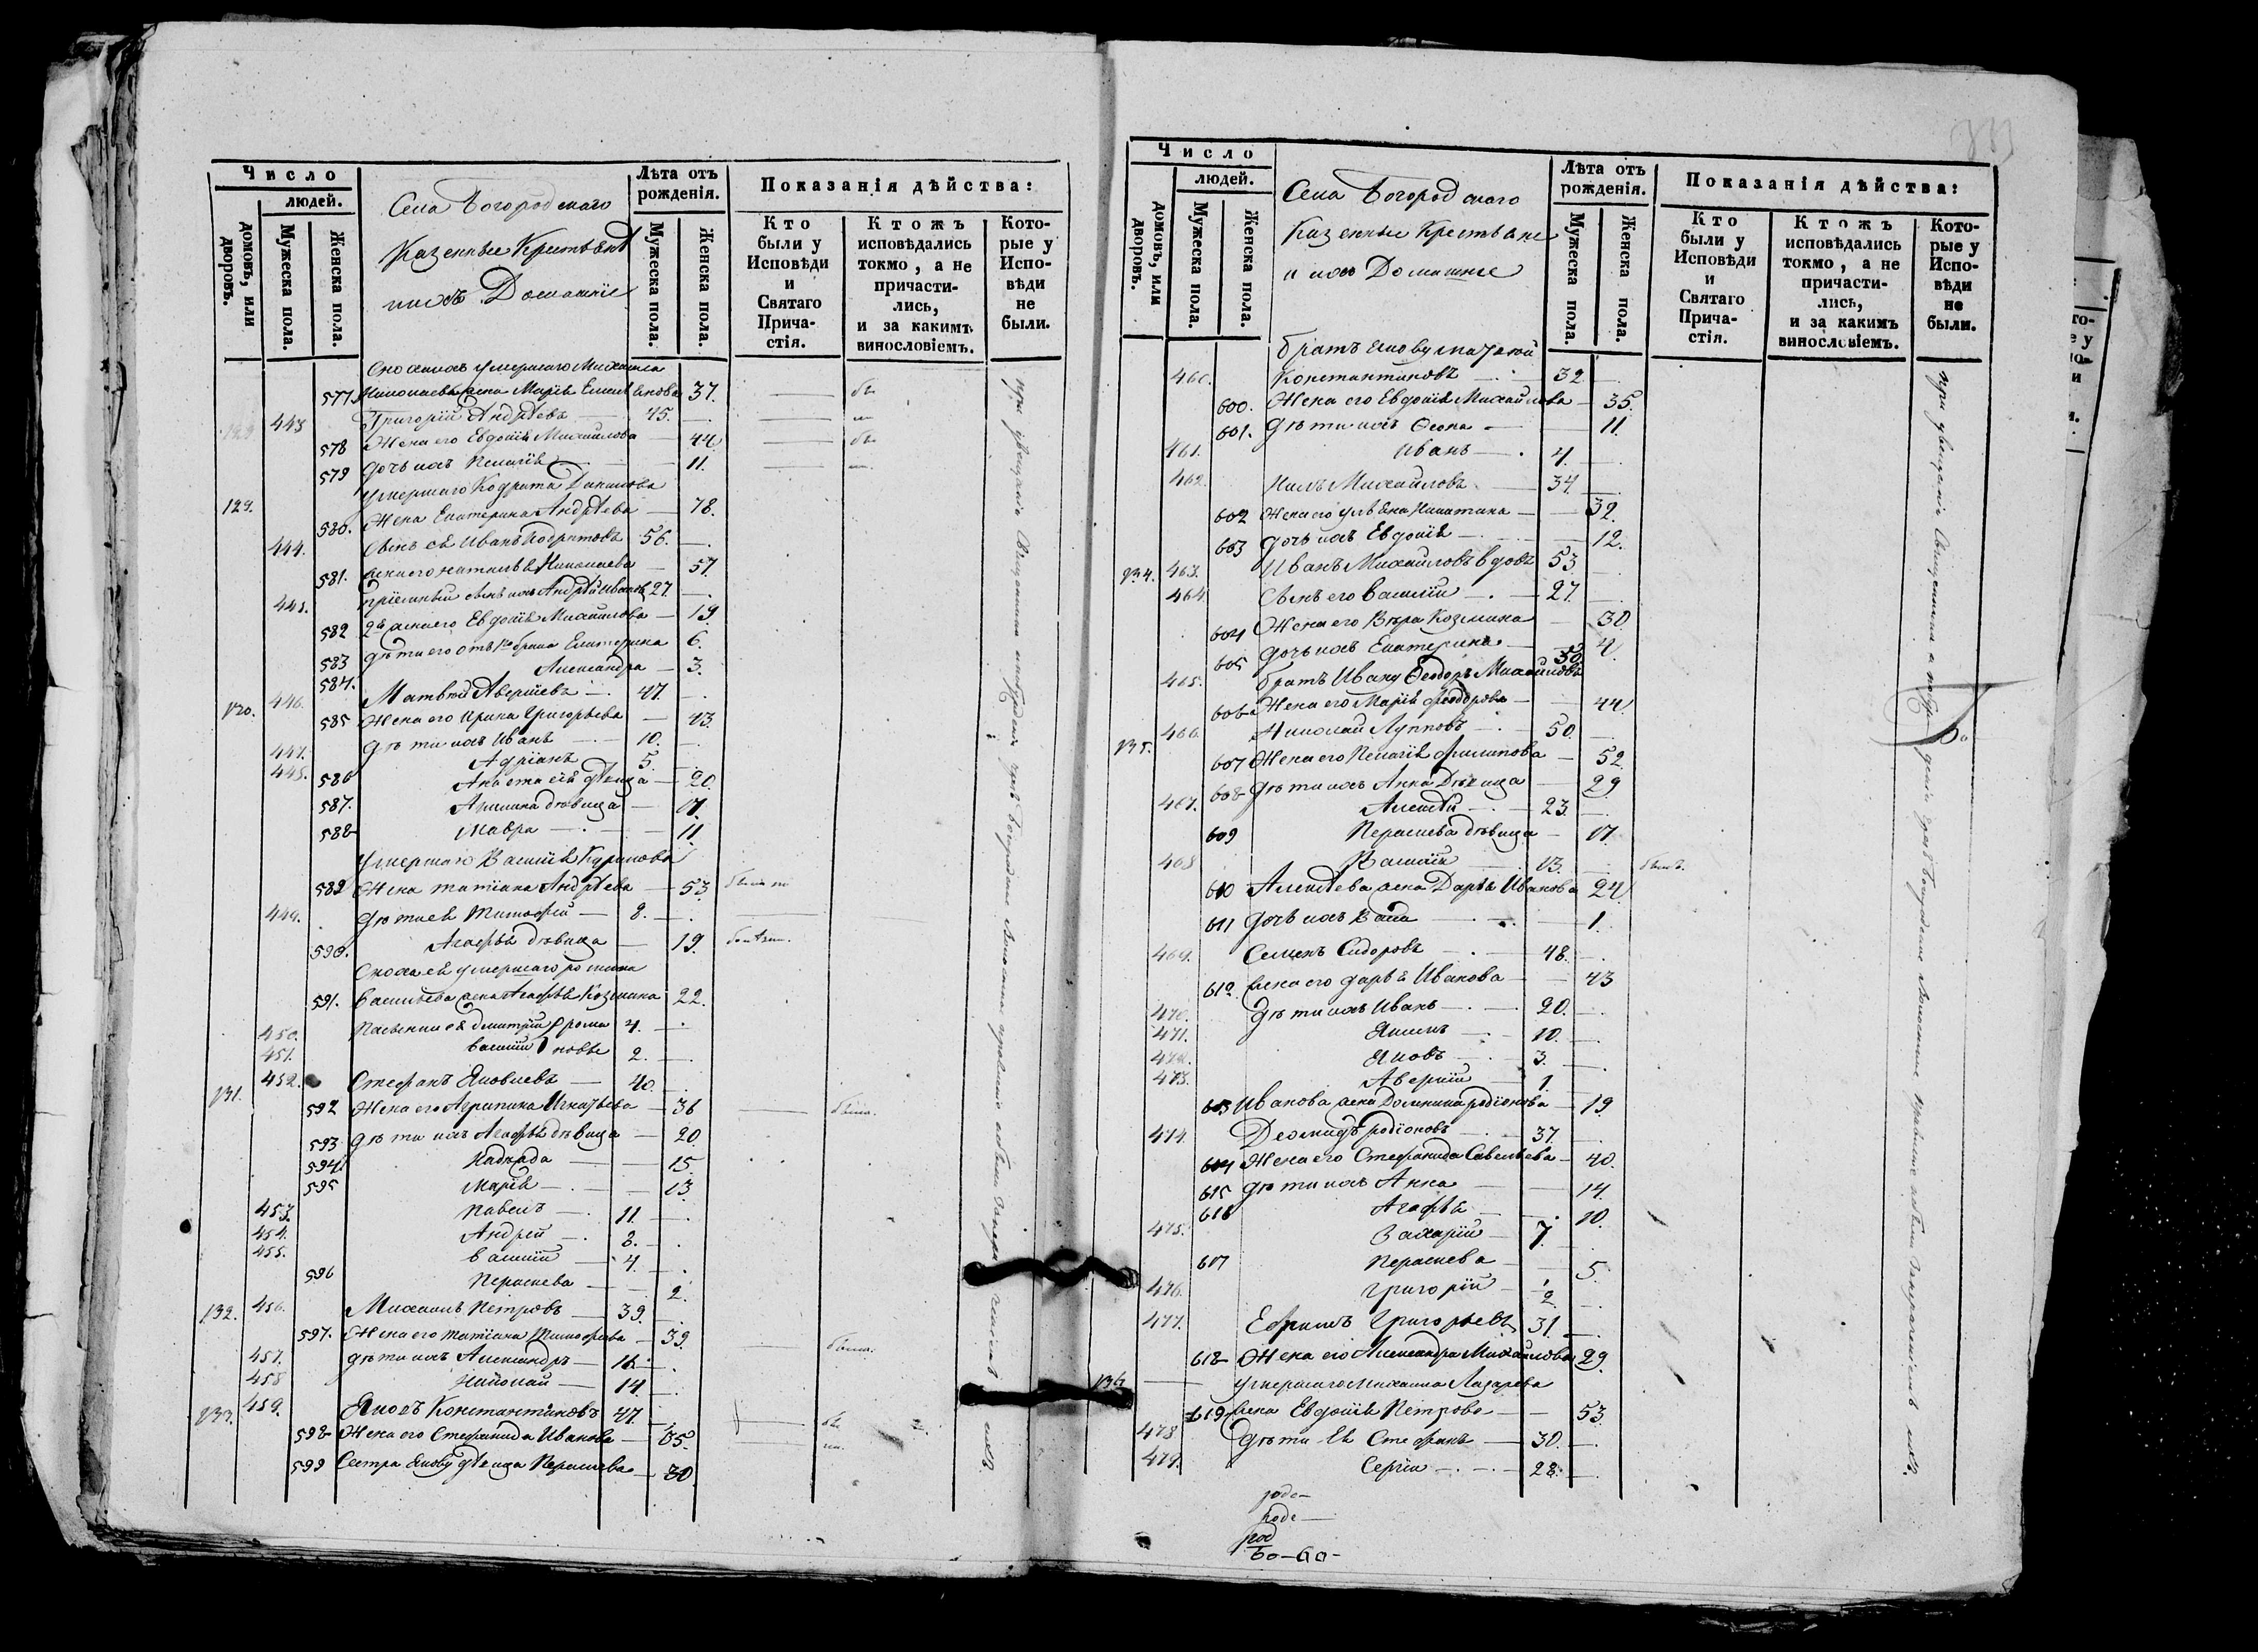 Число
людей.
домовъ, или дворовъ.
Мужеска пола.
Женска пола.
Села Богородскаго
Казенные Крестьяне
и ихъ Домашніе
Лѣта отъ рожденія.
Мужеска пола.
Женска пола.
Показанія дѣйства:
Кто были у Исповѣди и Святаго Прича-стія.
Ктожъ исповѣдались токмо, а не причасти-лись, и за какимъ винословіемъ.
Кото-рые у Испо-вѣди не были.
Сноха ихъ умершаго Михаила
577 Николаева жена Марія Емельянова 37.
443 Григорій Андрѣевъ 45.
578 Жена его Евдокія Михайлова 44
579 Дочь ихъ Пелагія 11.
умершаго Кодрата Данилова
129. 580. Жена Екатерина Андрѣева 78.
444. Сынъ сѣ Иванъ Кодратовъ 56.
581. жена его Наталья Николаева 57
445. пріемный сынъ ихъ Андрѣй Ивановъ 27.
582 2я жена его Евдокія Михайлова 19
583 дѣти его отъ 1го брака Екатерина 6.
584. Александра 3.
130. 446. Матвѣй Аверіевъ 47.
585 Жена его Ирина Григорьева 43.
447. дѣти ихъ Иванъ 10.
448. Адріанъ 5.
586 Анастасія дѣвица 20.
587. Акилина дѣвица 17.
588 Мавра 11.
умершаго Василія Курилова
589 Жена Татіана Андрѣева 53
449. дѣти ея Тимофей 8.
590. Агафья дѣвица 19.
Сноха ея умершаго романа
591. Васильева жена Агафья Козмина 22.
450. Пасынки ея Димитрій Рома 4.
451. Василій новы 2.
131. 452. Стефанъ Яковлевъ 40.
592 Жена его Агрипина Игнатьева 36
593 дѣти ихъ Агафья дѣвица 20.
594 Надежда 15.
595 Марія 13
453. Павелъ 11.
454. Андрей 8.
455. Василій 4.
596 Параскева 2.
132. 456. Михаилъ Петровъ 39.
597. Жена его Татіана Тимофеева 39.
457. дѣти ихъ Александръ 16.
458 Николай 14.
133. 459. Яковъ Константиновъ 47.
598 Жена его Стефанида Иванова 35.
599 Сестра Якову дѣвица Параскева 30.
Число
людей.
домовъ, или дворовъ.
Мужеска пола.
Женска пола.
Села Богородскаго
Казенные Крестьяне
и ихъ Домашніе
Лѣта отъ рожденія.
Мужеска пола.
Женска пола.
Показанія дѣйства:
Кто были у Исповѣди и Святаго Прича-стія.
Ктожъ исповѣдались токмо, а не причасти-лись, и за какимъ винословіемъ.
Кото-рые у Испо-вѣди не были.
братъ Якову
460. Константиновъ 32
600. Жена его Евдокія Михайлова 35.
601. дѣти ихъ Ѳекла 11.
461. Иванъ 4.
462. Нилъ Михайловъ 34.
602 Жена его Уліяна Никитина 32.
603 дочь ихъ Евдокія 12.
134. 463. Иванъ Михайловъ вдовъ 53
464. Сынъ его Василій 27.
604 Жена его Вѣра Козмина 30.
605 дочь ихъ Екатерина 4
465. братъ Ивану Ѳеодоръ Михайловъ 50.
606 Жена его Марія Ѳеодорова 44
135. 466. Николай Лупповъ 50.
607 Жена его Пелагія Филипова 52
608 дѣти ихъ Анна Дѣвица 29
467. Алексѣй 23.
609 Параскева дѣвица 17.
468 Василій 13.
610 Алексѣева жена Дарья Иванова 24
611 дочь ихъ Васа 1.
469. Семенъ Сидоровъ 48.
612 жена его Дарья Иванова 43
470. дѣти ихъ Иванъ 20.
471. Якимъ 10.
472. Яковъ 3.
473. Аверкій 1.
613 Иванова жена Домника Родіонова 19
474. Деомидъ Родіоновъ 37.
614 Жена его Стефанида Савельева 40.
615 дѣти ихъ Анна 14.
616 Агафья 10.
475. Захарій 7.
617 Параскева 5.
476. Григорій 2
477. Ефимъ Григорьевъ 31.
618 Жена его Александра Михайлова 29.
136 умершаго Михаила Лазарева
619 жена Евдокія Петрова 53.
478 дѣти Ея Стефанъ 30.
479. Сергій 28.